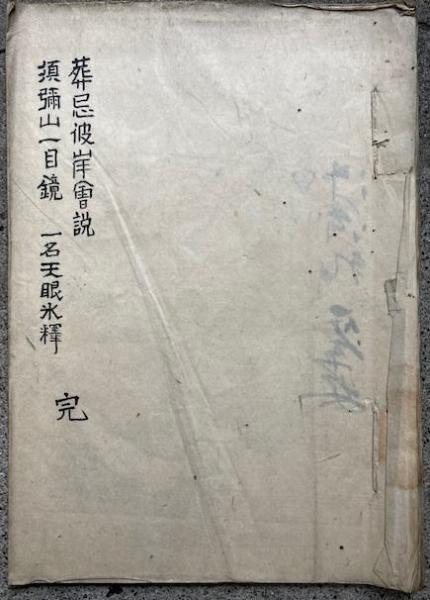 葬忌彼岸會説
須彌山一目鏡　一名天眼氷釋　完